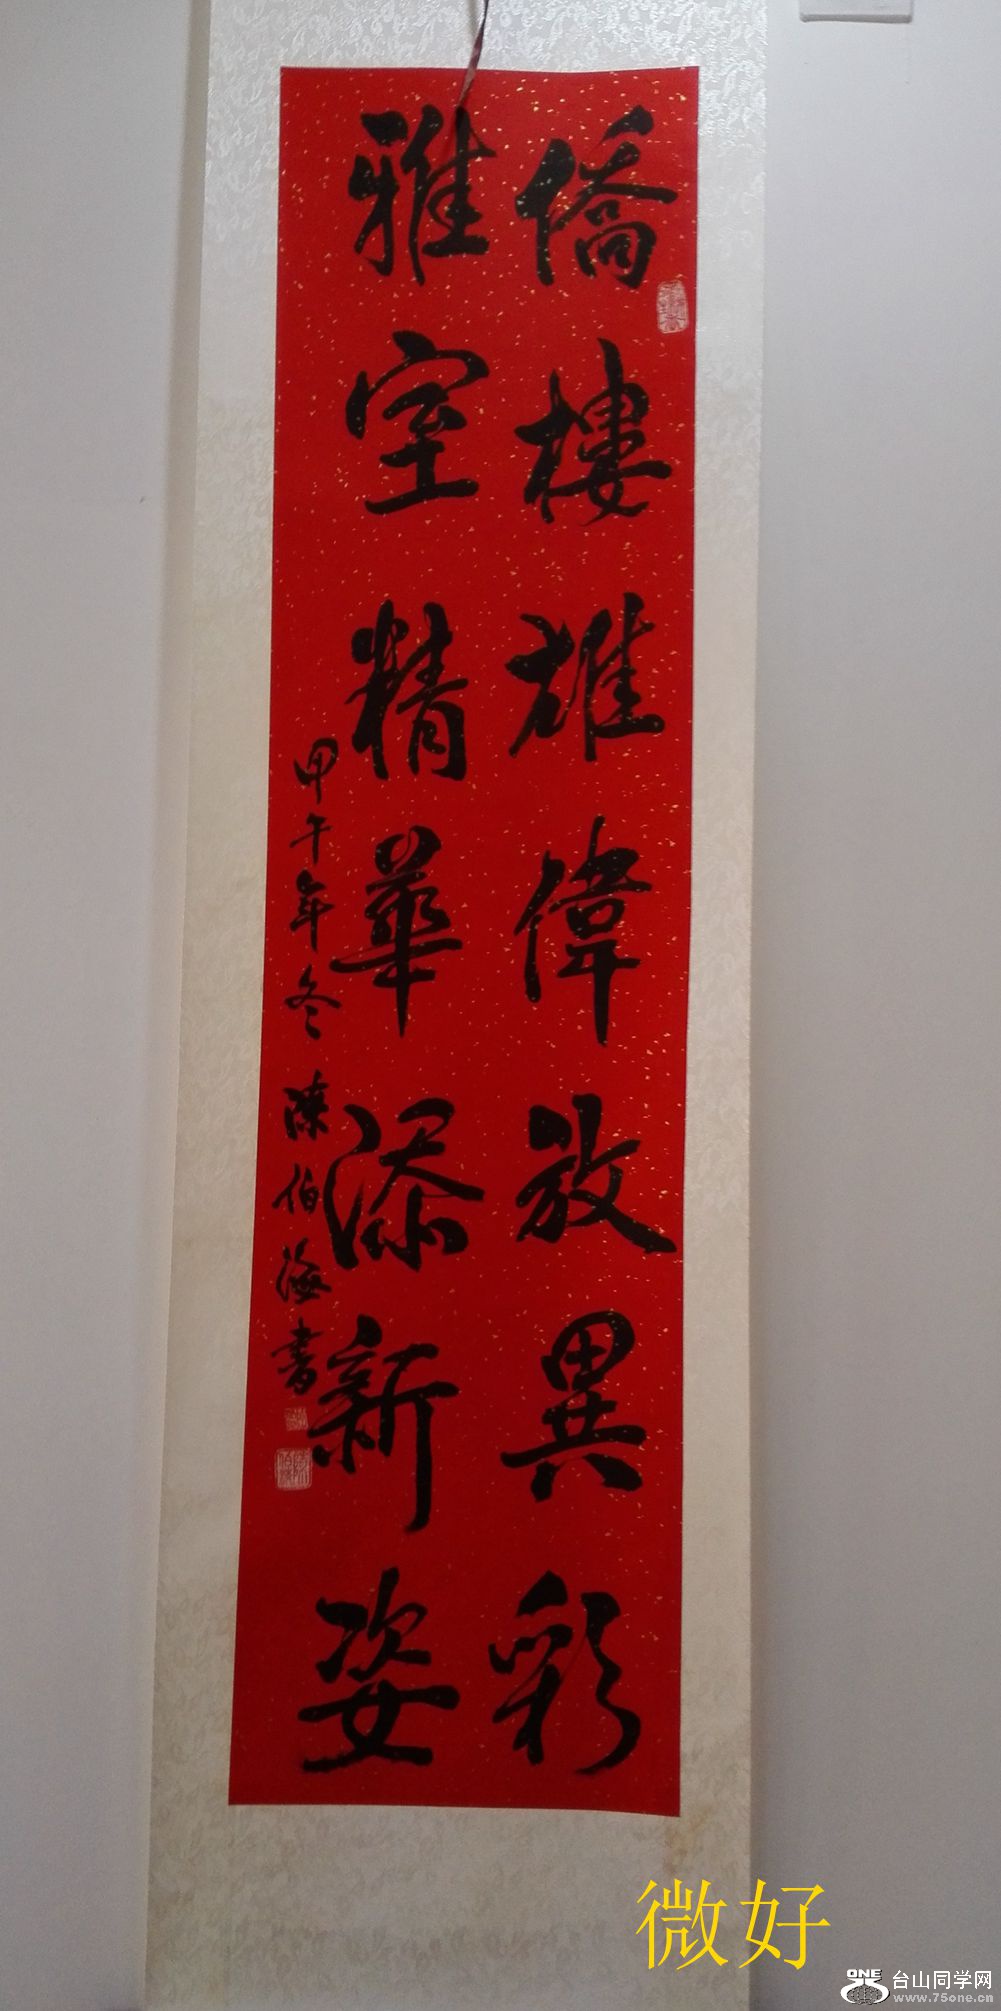 僑樓雄偉放異彩
雅室精華添新姿
甲午年冬 陳伯海書
微好
ONE 台山同学网
www.75one.cn